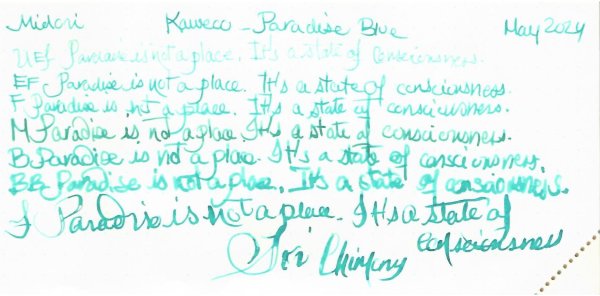 Midori Kaweco - Paradise Blue May 2024
UEF Paradise is not a place. It's a state of consciousness.
EF Paradise is not a place. It's a state of consciousness.
F Paradise is not a place. It's a state of consciousness.
M Paradise is not a place. It's a state of consciousness.
B Paradise is not a place. It's a state of consciousness.
BB Paradise is not a place. It's a state of consciousness.
J Paradise is not a place. It's a state of
consciousness
Sri Chinmoy